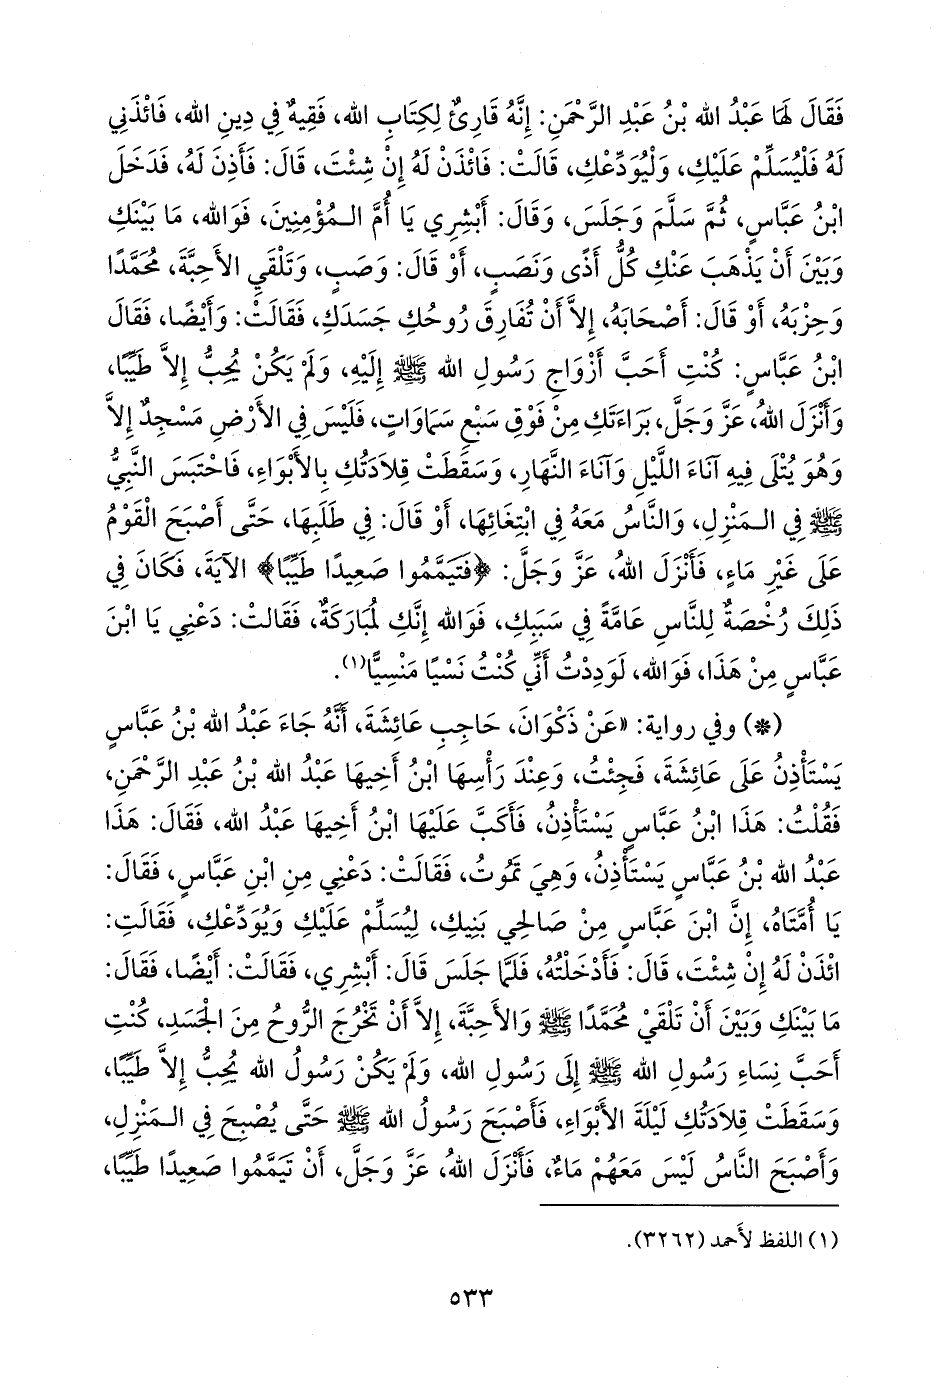 فَقَالَ لَهَا عَبْدُ الله بْنُ عَبْدِ الرَّحْمَنِ: إِنَّهُ قَارِئٌ لِكِتَابِ الله، فَقِيهٌ فِي دِينِ الله، فَائْذَنِي
لَهُ فَلْيُسَلِّمْ عَلَيْكِ، وَلْيُوَدِّعْكِ، قَالَتْ: فَائْذَنْ لَهُ إِنْ شِئْتَ، قَالَ: فَأَذِنَ لَهُ، فَدَخَلَ
ابْنُ عَبَّاسٍ، ثُمَّ سَلَّمَ وَجَلَسَ، وَقَالَ: أَبْشِرِي يَا أُمَّ الـمُؤْمِنِينَ، فَوَالله، مَا بَيْنَكِ
وَبَيْنَ أَنْ يَذْهَبَ عَنْكِ كُلُّ أَذًى وَنَصَبٍ، أَوْ قَالَ: وَصَبٍ، وَتَلْقَيِ الأَحِبَّةَ، مُحَمَّدًا
وَحِزْبَهُ، أَوْ قَالَ: أَصْحَابَهُ، إِلاَّ أَنْ تُفَارِقَ رُوحُكِ جَسَدَكِ، فَقَالَتْ: وَأَيْضًا، فَقَالَ
ابْنُ عَبَّاسٍ: كُنْتِ أَحَبَّ أَزْوَاجِ رَسُولِ الله ﷺ إِلَيْهِ، وَلَمْ يَكُنْ يُحِبُّ إِلاَّ طَيِّبًا،
وَأَنْزَلَ اللهُ، عَزَّ وَجَلَّ، بَرَاءَتَكِ مِنْ فَوْقِ سَبْعِ سَمَاوَاتٍ، فَلَيْسَ فِي الأَرْضِ مَسْجِدٌ إِلاَّ
وَهُوَ يُتْلَى فِيهِ آنَاءَ اللَّيْلِ وَآنَاءَ النَّهَارِ، وَسَقَطَتْ قِلاَدَتُكِ بِالأَبْوَاءِ، فَاحْتَبَسَ النَّبِيُّ
ﷺ فِي الـمَنْزِلِ، وَالنَّاسُ مَعَهُ فِي ابْتِغَائِهَا، أَوْ قَالَ: فِي طَلَبِهَا، حَتَّى أَصْبَحَ الْقَوْمُ
عَلَى غَيْرِ مَاءٍ، فَأَنْزَلَ اللهُ، عَزَّ وَجَلَّ: ﴿فَتَيَمَّمُوا صَعِيدًا طَيِّبًا﴾ الآيَةَ، فَكَانَ فِي
ذَلِكَ رُخْصَةٌ لِلنَّاسِ عَامَّةً فِي سَبَبِكِ، فَوَالله إِنَّكِ لَمُبَارَكَةٌ، فَقَالَتْ: دَعْنِي يَا ابْنَ
عَبَّاسٍ مِنْ هَذَا، فَوَالله، لَوَدِدْتُ أَنِّي كُنْتُ نَسْيًا مَنْسِيًّا(١).
(*) وفي رواية: «عَنْ ذَكْوَانَ، حَاجِبِ عَائِشَةَ، أَنَّهُ جَاءَ عَبْدُ الله بْنُ عَبَّاسٍ
يَسْتَأْذِنُ عَلَى عَائِشَةَ، فَجِئْتُ، وَعِنْدَ رَأْسِهَا ابْنُ أَخِيهَا عَبْدُ الله بْنُ عَبْدِ الرَّحْمَنِ،
فَقُلْتُ: هَذَا ابْنُ عَبَّاسٍ يَسْتَأْذِنُ، فَأَكَبَّ عَلَيْهَا ابْنُ أَخِيهَا عَبْدُ الله، فَقَالَ: هَذَا
عَبْدُ الله بْنُ عَبَّاسٍ يَسْتَأْذِنُ، وَهِيَ تَمُوتُ، فَقَالَتْ: دَعْنِي مِنِ ابْنِ عَبَّاسٍ، فَقَالَ:
يَا أُمَّتَاهُ، إِنَّ ابْنَ عَبَّاسٍ مِنْ صَالِحِي بَنِيكِ، لِيُسَلِّمْ عَلَيْكِ وَيُوَدِّعْكِ، فَقَالَتِ:
ائْذَنْ لَهُ إِنْ شِئْتَ، قَالَ: فَأَدْخَلْتُهُ، فَلَمَّا جَلَسَ قَالَ: أَبْشِرِي، فَقَالَتْ: أَيْضًا، فَقَالَ:
مَا بَيْنَكِ وَبَيْنَ أَنْ تَلْقَيْ مُحَمَّدًا ﷺ وَالأَحِبَّةَ، إِلاَّ أَنْ تَخْرُجَ الرُّوحُ مِنَ الْجَسَدِ، كُنْتِ
أَحَبَّ نِسَاءِ رَسُولِ الله ﷺ إِلَى رَسُولِ الله، وَلَمْ يَكُنْ رَسُولُ الله يُحِبُّ إِلاَّ طَيِّبًا،
وَسَقَطَتْ قِلاَدَتُكِ لَيْلَةَ الأَبْوَاءِ، فَأَصْبَحَ رَسُولُ الله ﷺ حَتَّى يُصْبِحَ فِي الـمَنْزِلِ،
وَأَصْبَحَ النَّاسُ لَيْسَ مَعَهُمْ مَاءٌ، فَأَنْزَلَ اللهُ، عَزَّ وَجَلَّ، أَنْ تَيَمَّمُوا صَعِيدًا طَيِّبًا،
(١) اللفظ لأحمد (٣٢٦٢).
٥٣٣